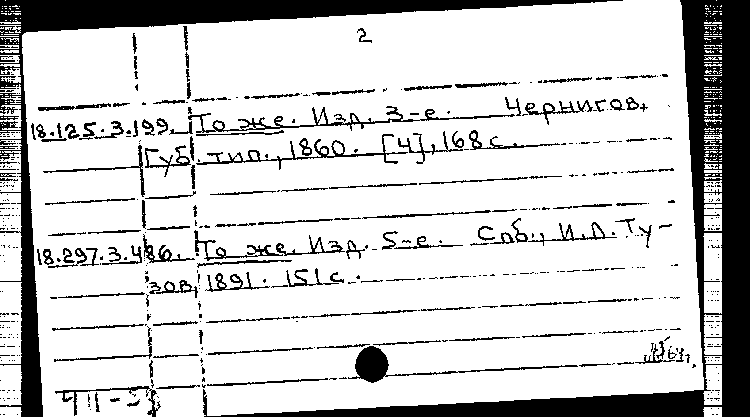 2
18.125.3.199. То же. Изд. 3-е. Чернигов,
Губ. тип., 1860. [4], 168 с.
18.297.3.486. То же. Изд. 5-е. Спб., И.Л. Ту-
зов, 1891. 151 с.